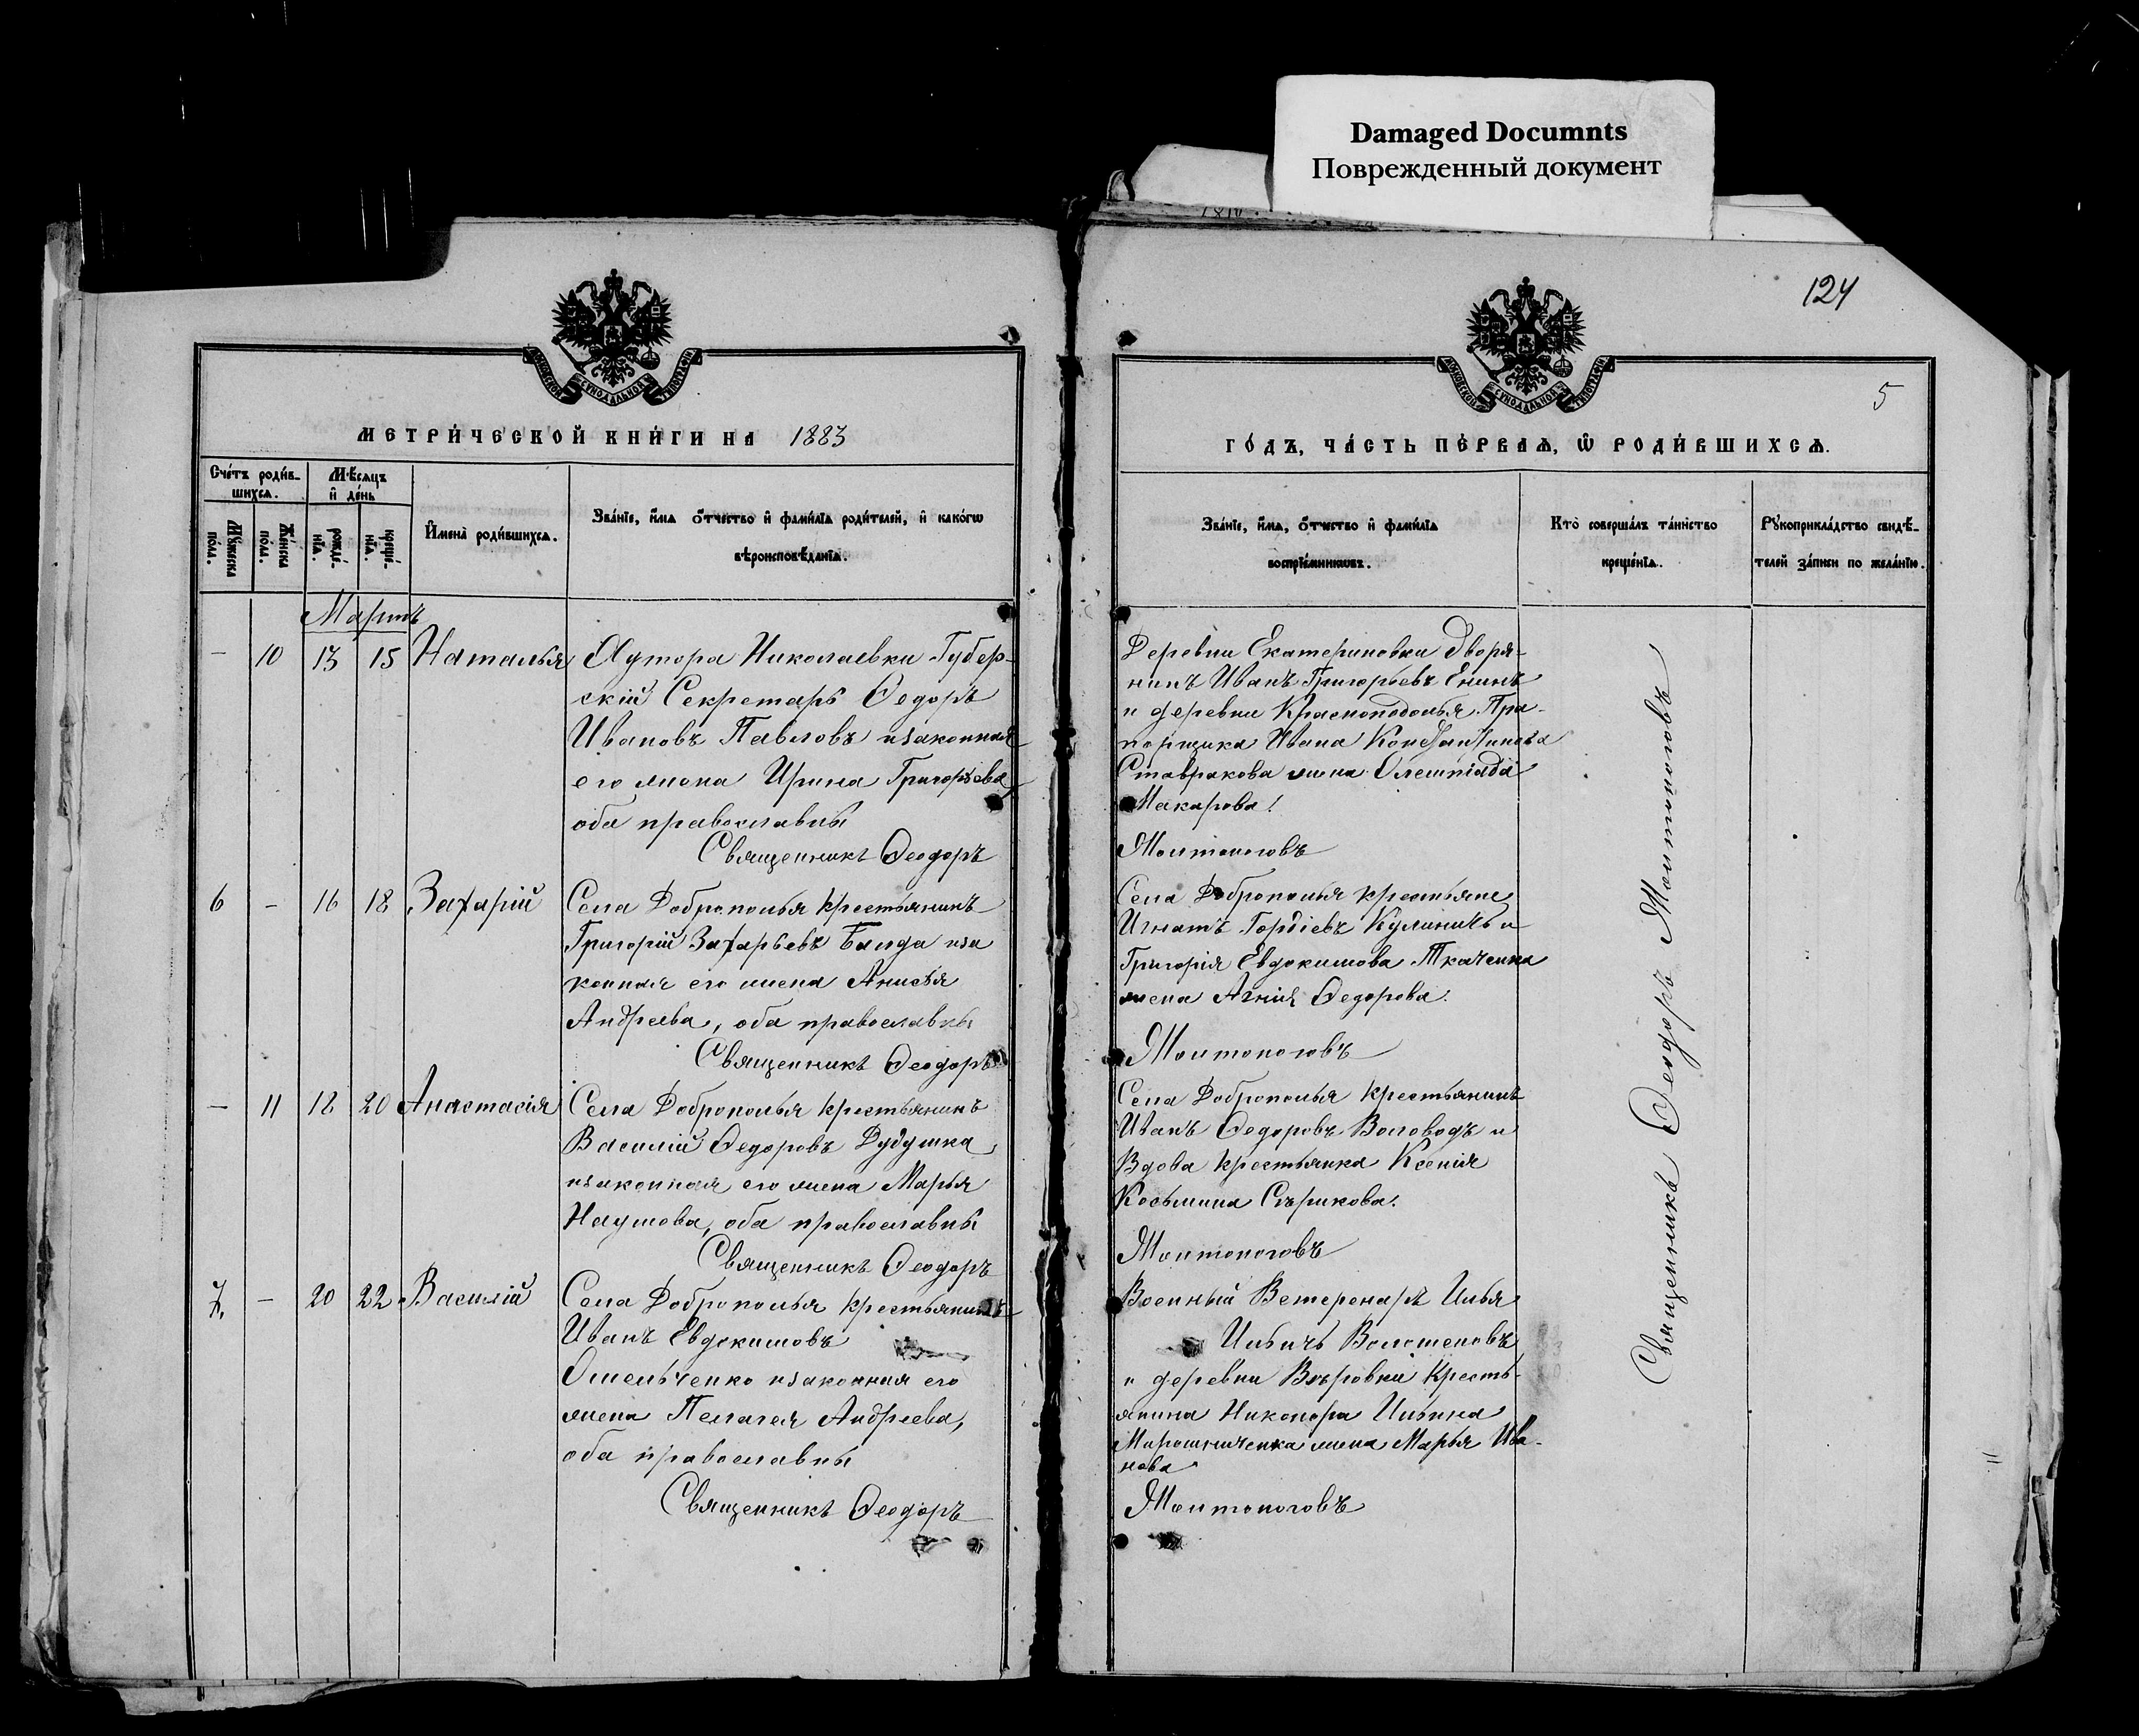 Damaged Documnts
Поврежденный документ
124
5
МЕТРИЧЕСКОЙ КНИГИ НА 1883
ГОДЪ, ЧАСТЬ ПЕРВАЯ, Ѡ РОДИВШИХСЯ.
Счетъ родив-
шихся.
Мѣсяцъ
и день
Мужеска
пола.
Женска
пола.
рожде-
нія.
креще-
нія.
Имена родившихся.
Званіе, имя отчество и фамилія родителей, и какогѡ
вѣроисповѣданія.
Званіе, имя, отчество и фамилія
воспріемниковъ.
Кто совершалъ таинство
крещенія.
Рукоприкладство свидѣ-
телей записи по желанію.
Мартъ
— 10 13 15 Наталья
Хутора Николаевки Губер-
скій Секретарь Ѳедоръ
Ивановъ Павловъ изаконная
его жена Ирина Григорьева
оба православны
Священникъ Ѳеодоръ
Деревни Екатериновки дворя-
нинъ Иванъ Григорьевъ Енинъ
и деревни Краснополья Пра-
порщика Ивана Константинова
Ставракова жена Олемпіада
Макарова!
6 — 16 18 Захарій
Села Доброполья крестьянинъ
Григорій Захарьевъ иза
конная его жена Анисья
Андреева, оба православны
Священникъ Ѳеодоръ
Села Доброполья крестьяне
Игнатъ Гордіевъ Кулиничъ и
Григорія Евдокимова Ткаченка
жена Агнія Ѳедорова.
— 11 18 20 Анастасія
Села Доброполья крестьянинъ
Василій Ѳедоровъ Дудушка
изаконная его жена Марья
Наумова, оба православны
Священникъ Ѳеодоръ
Села Доброполья крестьянинъ
Иванъ Ѳедоровъ Воловодъ и
Вдова крестьянка Ксенія
Косьмина Сѣрикова.
7. — 20 22 Василій
Села Доброполья крестьянинъ
Иванъ Евдокимовъ
Омельченко изаконная его
жена Пелагея Андреева,
оба православны
Священникъ Ѳеодоръ
Военный Ветеренаръ Илья
Ильичъ Волошеновъ
и деревни Вѣровки Кресть-
янина Никонора Ильина
Мирошниченка жена Марья Ива-
нова
Священникъ Ѳеодоръ